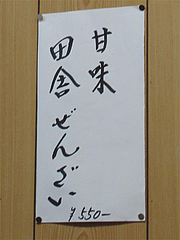 甘味
田舎ぜんざい
¥550−